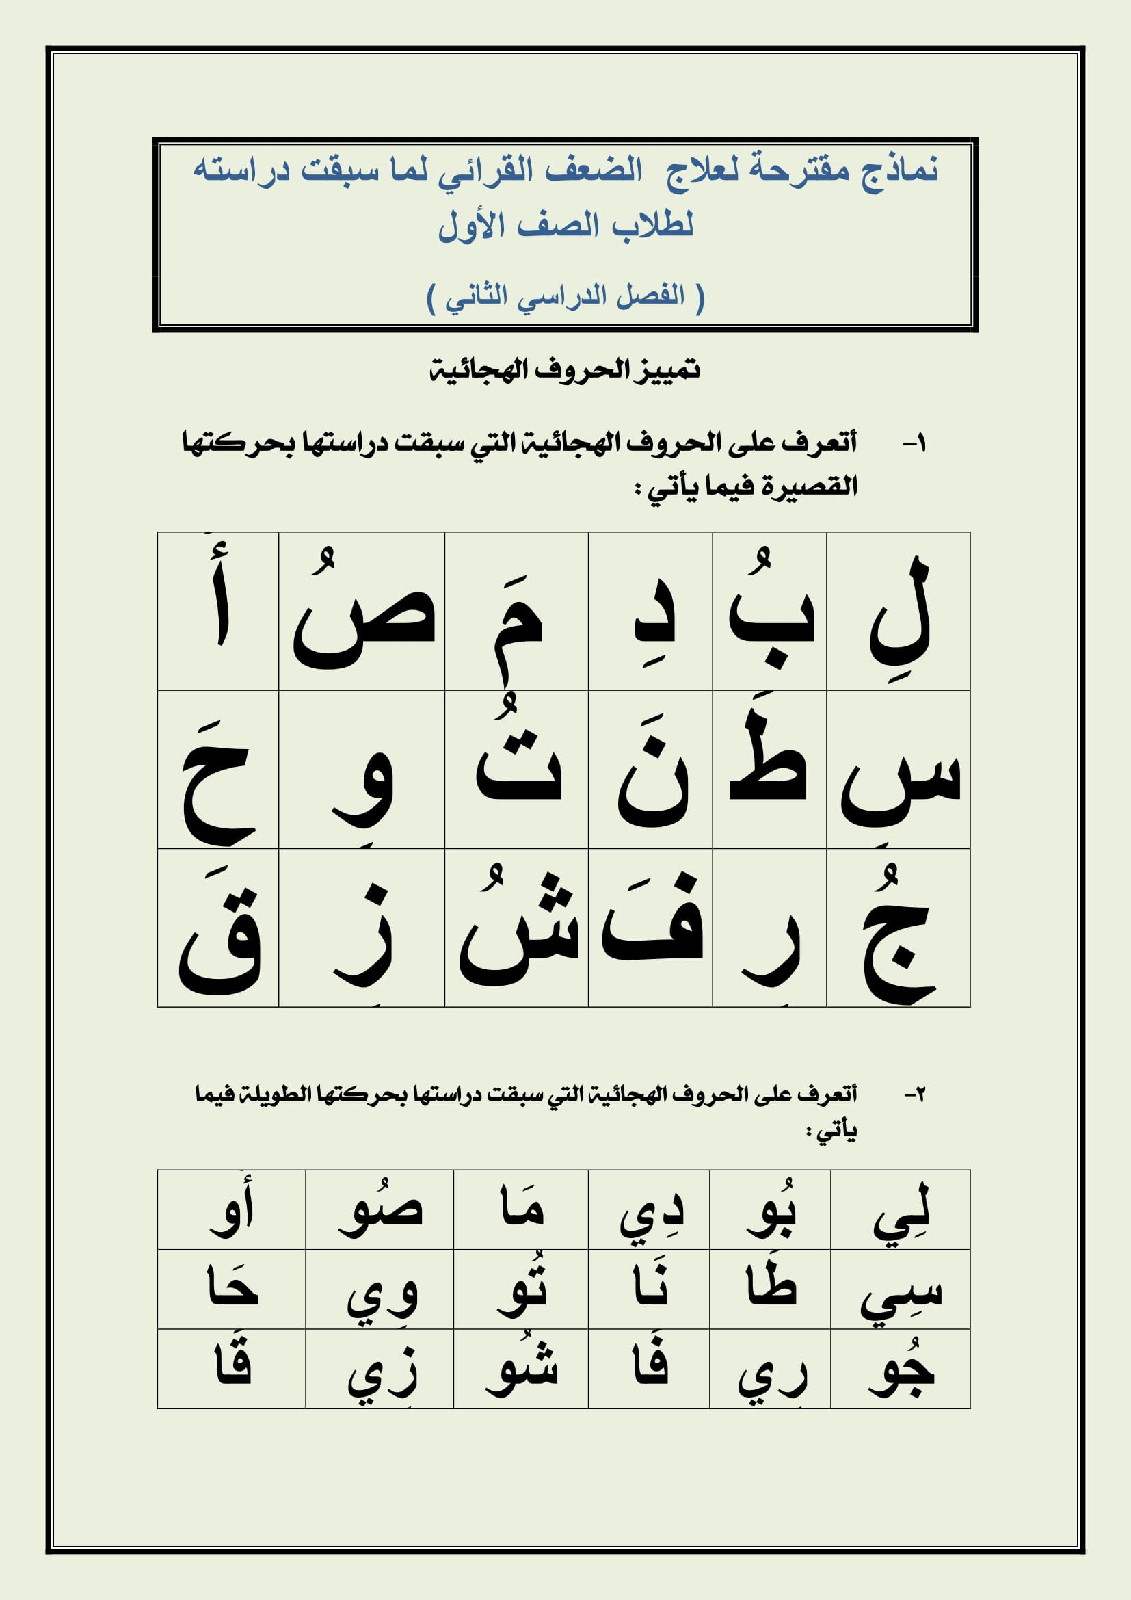 نماذج مقترحة لعلاج الضعف القرائي لما سبقت دراسته
لطلاب الصف الأول
( الفصل الدراسي الثاني )
تمييز الحروف الهجائية
١- أتعرف على الحروف الهجائية التي سبقت دراستها بحركتها
القصيرة فيما يأتي :
لِ بُ دِ مَ صُ أَ
سِ طَ نَ تُ وِ حَ
جُ رِ فَ شُ زِ قَ
٢- أتعرف على الحروف الهجائية التي سبقت دراستها بحركتها الطويلة فيما
يأتي :
لِي بُو دِي مَا صُو أَو
سِي طَا نَا تُو وِي حَا
جُو رِي فَا شُو زِي قَا